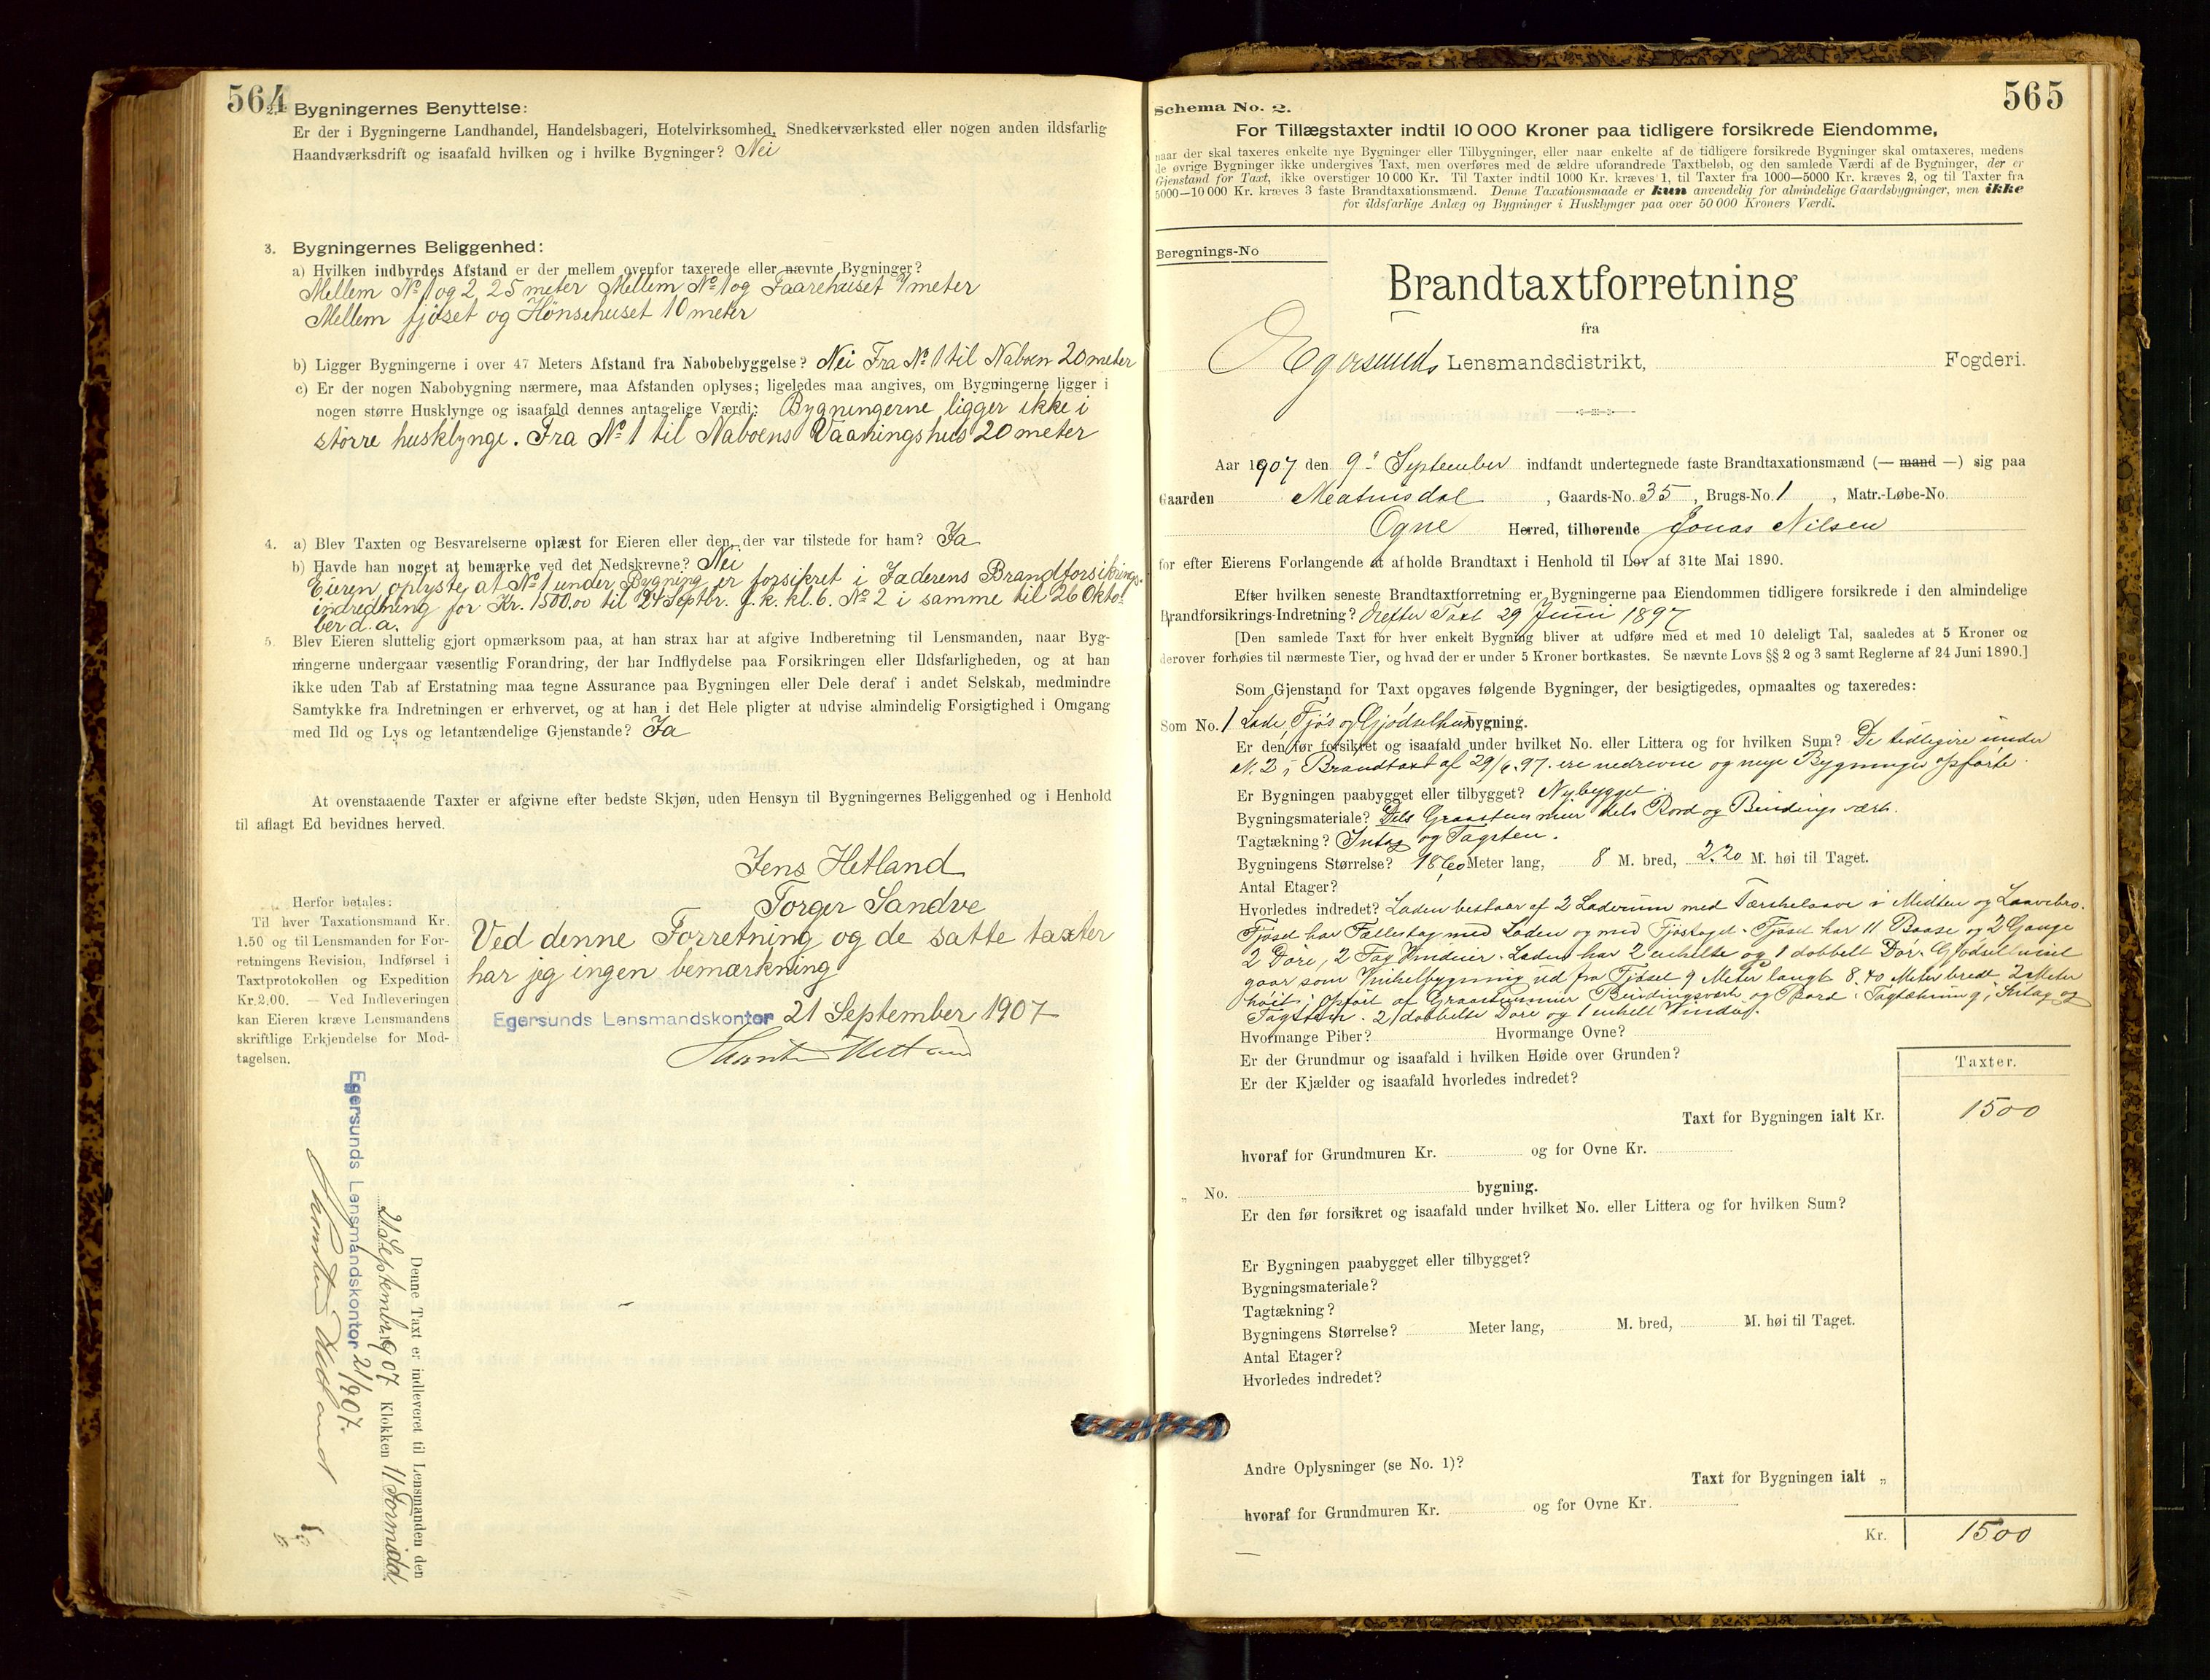 564
2. Bygningernes Benyttelse:
Er der i Bygningerne Landhandel, Handelsbageri, Hotelvirksomhed, Snedkerværksted eller nogen anden ildsfarlig
Haandværksdrift og isaafald hvilken og i hvilke Bygninger? Nei
3. Bygningernes Beliggenhed:
a) Hvilken indbyrdes Afstand er der mellem ovenfor taxerede eller nævnte Bygninger?
Mellem No 1 og 2, 25 meter Mellem No 1 og Faarehuset 9 meter
Mellem fjöset og Hönsehuset 10 meter
b) Ligger Bygningerne i over 47 Meters Afstand fra Nabobebyggelse? Nei Fra No 1 til Naboen 20 meter
c) Er der nogen Nabobygning nærmere, maa Afstanden oplyses; ligeledes maa angives, om Bygningerne ligger i
nogen større Husklynge og isaafald dennes antagelige Værdi: Bygningerne ligger ikke i
större husklynge. Fra No 1 til Naboens Vaaningshus 20 meter
4. a) Blev Taxten og Besvarelserne oplæst for Eieren eller den, der var tilstede for ham? Ja
b) Havde han noget at bemærke ved det Nedskrevne? Nei
Eieren oplyste at No 1 under Bygning er forsikret i Jæderens Brandforsikrings-
indredning for Kr. 1500.00 til 24 Septbr. f. k. kl. 6. No 2 i samme til 26 Okto-
ber d.a.
5. Blev Eieren sluttelig gjort opmærksom paa, at han strax har at afgive Indberetning til Lensmanden, naar Byg-
ningerne undergaar væsentlig Forandring, der har Indflydelse paa Forsikringen eller Ildsfarligheden, og at han
ikke uden Tab af Erstatning maa tegne Assurance paa Bygningen eller Dele deraf i andet Selskab, medmindre
Samtykke fra Indretningen er erhvervet, og at han i det Hele pligter at udvise almindelig Forsigtighed i Omgang
med Ild og Lys og letantændelige Gjenstande? Ja
At ovenstaaende Taxter er afgivne efter bedste Skjøn, uden Hensyn til Bygningernes Beliggenhed og i Henhold
til aflagt Ed bevidnes herved.
Jens Hetland
Torger Sandve
Herfor betales:
Til hver Taxationsmand Kr.
1.50 og til Lensmanden for For-
retningens Revision, Indførsel i
Taxtprotokollen og Expedition
Kr. 2.00. — Ved Indleveringen
kan Eieren kræve Lensmandens
skriftlige Erkjendelse for Mod-
tagelsen.
Ved denne Forretning og de satte taxter
har jeg ingen bemærkning
Egersunds Lensmandskontor 21 September 1907
Denne Taxt er indleveret til Lensmanden den
21 Septembr. 1907 Klokken 11 Formidd.
Egersunds Lensmandskontor 21/9 07.
565
Schema No. 2.
For Tillægstaxter indtil 10 000 Kroner paa tidligere forsikrede Eiendomme,
naar der skal taxeres enkelte nye Bygninger eller Tilbygninger, eller naar enkelte af de tidligere forsikrede Bygninger skal omtaxeres, medens
de øvrige Bygninger ikke undergives Taxt, men overføres med de ældre uforandrede Taxtbeløb, og den samlede Værdi af de Bygninger, der er
Gjenstand for Taxt, ikke overstiger 10 000 Kr. Til Taxter indtil 1000 Kr. kræves 1, til Taxter fra 1000—5000 Kr. kræves 2, og til Taxter fra
5000—10 000 Kr. kræves 3 faste Brandtaxationsmænd. Denne Taxationsmaade er kun anvendelig for almindelige Gaardsbygninger, men ikke
for ildsfarlige Anlæg og Bygninger i Husklynger paa over 50 000 Kroners Værdi.
Beregnings-No
Brandtaxtforretning
fra
Egersunds Lensmandsdistrikt, Fogderi.
Aar 1907 den 9. September indfandt undertegnede faste Brandtaxationsmænd (— mand —) sig paa
Gaarden , Gaards-No. 35, Brugs-No. 1, Matr.-Løbe-No.
Ogne Herred, tilhørende Jonas Nilsen
for efter Eierens Forlangende at afholde Brandtaxt i Henhold til Lov af 31te Mai 1890.
Efter hvilken seneste Brandtaxtforretning er Bygningerne paa Eiendommen tidligere forsikrede i den almindelige
Brandforsikrings-Indretning? Taxt 29 Juni 1897
[Den samlede Taxt for hver enkelt Bygning bliver at udføre med et med 10 deleligt Tal, saaledes at 5 Kroner og
derover forhøies til nærmeste Tier, og hvad der er under 5 Kroner bortkastes. Se nævnte Lovs §§ 2 og 3 samt Reglerne af 24 Juni 1890.]
Som Gjenstand for Taxt opgaves følgende Bygninger, der besigtigedes, opmaaltes og taxeredes:
Som No. 1 Lade, Fjös og Gjödselhus bygning.
Er den før forsikret og isaafald under hvilket No. eller Littera og for hvilken Sum? De tidligere under
N. 2 i Brandtaxt af 29/6.97. ere nedrevne og nye Bygninger opførte.
Er Bygningen paabygget eller tilbygget? Nybygget.
Bygningsmateriale? Dels Graastens mur dels Bord og Bindingsværk.
Tagtækning? og Tagsten.
Bygningens Størrelse? 18,60 Meter lang, 8 M. bred, 2.20 M. høi til Taget.
Antal Etager?
Hvorledes indredet? Laden bestaar af 2 Laderum med Tærskelaave i Midten og Laavebro.
Fjöset har Fællestag med Laden og med . Fjöset har 11 Baase og 2 Gange
2 Döre, 2 Fag Vinduer. Laden har 2 enkelte og 1 dobbelt Dör. Gjödselhuset
gaar som Vinkelbygning ud fra Fjöset 9 Meter langt 8.40 Meter bredt 2 Meter
höit, opfört af Graastensmur Bindingsværk og Bord. Tagtækning og
Tagsten. 2 dobbelte Döre og 1 enkelt Vindu.
Hvormange Piber? Hvormange Ovne?
Er der Grundmur og isaafald i hvilken Høide over Grunden?
Er der Kjælder og isaafald hvorledes indredet?
Taxter.
Taxt for Bygningen ialt Kr. 1500
hvoraf for Grundmuren Kr. og for Ovne Kr.
„ No. bygning.
Er den før forsikret og isaafald under hvilket No. eller Littera og for hvilken Sum?
Er Bygningen paabygget eller tilbygget?
Bygningsmateriale?
Tagtækning?
Bygningens Størrelse? Meter lang, M. bred, M. høi til Taget.
Antal Etager?
Hvorledes indredet?
Andre Oplysninger (se No. 1)?
Taxt for Bygningen ialt „
hvoraf for Grundmuren Kr. og for Ovne Kr.
Kr. 1500